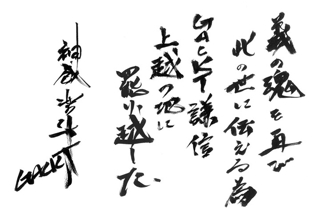 義の魂を再び
此の世に伝える為
GACKT謙信
上越の地に
罷り越した。
神威楽斗
GACKT